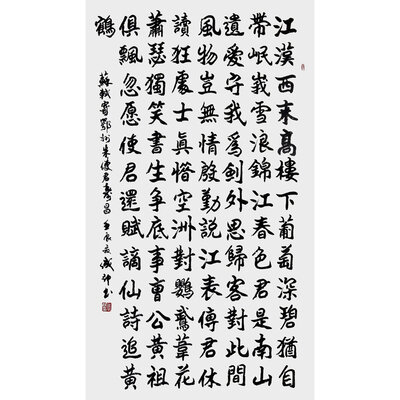 江漢西来高樓下葡萄深碧猶自
帶岷峩雪浪錦江春色君是南山
遺愛守我為劍外思歸客對此間
風物豈無情殷勤說江表傳君休
讀狂處士真惜空洲對鸚鵡葦花
蕭瑟獨笑書生争底事曹公黃祖
俱飄忽愿使君還賦謫仙詩追黃
鶴
蘇軾寄鄂州朱使君壽昌 壬辰